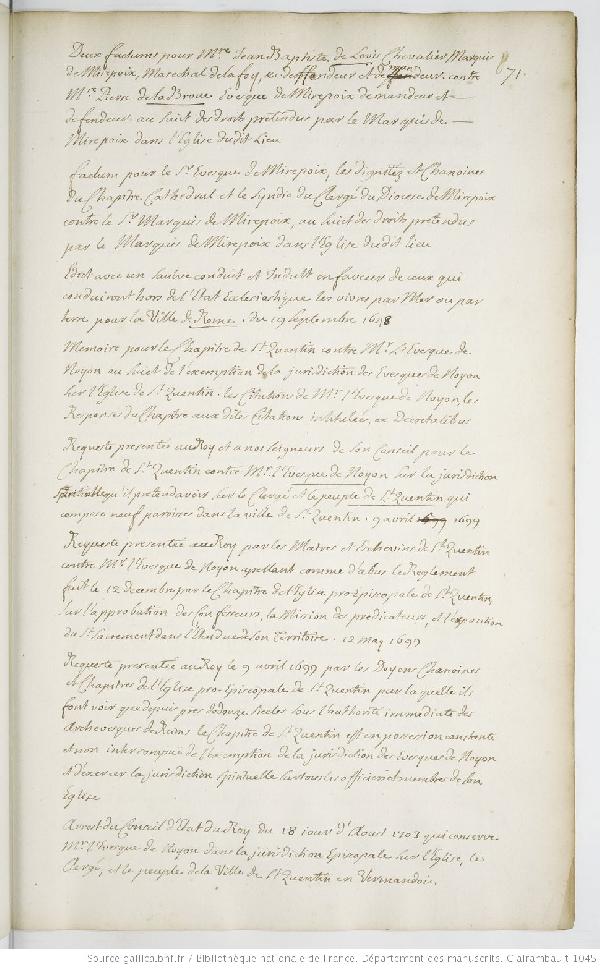 Deux factums pour Mre. Jean Baptiste de Levis Chevalier, Marquis
de Mirepoix, Marechal de la foy, deffendeur et demandeur contre
71.
Mre. Pierre de la Broue evêque de Mirepoix demandeur et
defendeur au sujet des droits pretendus par le Marquis de
Mirepoix dans l'Eglise dudit Lieu
factum pour le Sr. Evesque de Mirepoix, les dignitez et Chanoines
du Chapitre Cathedral et le Syndic du Clergé du Diocese de Mirepoix
contre le Sr. Marquis de Mirepoix, au sujet des droits pretendus
par le Marquis de Mirepoix dans l'Eglise dudit lieu
Edict avec un saulve conduit et Indult en faveur de ceux qui
conduiront hors de l'Etat Eclesiastique les vivres par Mer ou par
terre pour la Ville de Rome. du 19 Septembre 1698
Memoire pour le Chapitre de St. Quentin contre Mr. l'Evesque de
Noyon au sujet de l'exemption de la jurisdiction des Evesques de Noyon
sur l'Eglise de St. Quentin. les Citations de Mr. l'Evesque de Noyon, les
Responses du Chapitre aux dites Citations intitulées, ex Decretalibus
Requeste presentée au Roy et a nos seigneurs de son Conseil pour le
Chapitre de St. Quentin contre Mr. l'Evesque de Noyon sur la jurisdiction
spirituelle qu'il pretend avoir sur le Clergé et le peuple de St. Quentin qui
compose neuf paroisses dans la ville de St. Quentin. 9 avril 1699 1699
Requeste presentée au Roy par les Maires et Eschevins de St. Quentin
contre Mr. l'Evesque de Noyon appellant comme d'abus le Reglement
fait le 12 decembre par le Chapitre de l'Eglise pro-Episcopale de St. Quentin
sur l'approbation des Confesseurs, la Mission des predicateurs, et l'exposition
du St. Sacrement dans l'etendue de son Territoire. 12 May 1699
Requeste presentée au Roy le 9 avril 1699 par les Doyens Chanoines
et Chapitres de l'Eglise pro-Episcopale de St. Quentin par la quelle ils
font voir que depuis pres de douze siecles sous l'authorité immediate des
Archevesques de Reims le Chapitre de St. Quentin est en possession constante
et non interrompue de l'exemption de la jurisdiction des Evesques de Noyon
et d'exercer la jurisdiction spirituelle sur tous les officiers et membres de son
Eglise
Arrest du Conseil d'Etat du Roy du 18 jour d'Aoust 1703 qui conserve
Mr. l'Evesque de Noyon dans la jurisdiction Episcopale sur l'Eglise, le
Clergé, et le peuple de la Ville de St. Quentin en Vermandois.
Source gallica.bnf.fr / Bibliothèque nationale de France. Département des manuscrits. Clairambault 1045